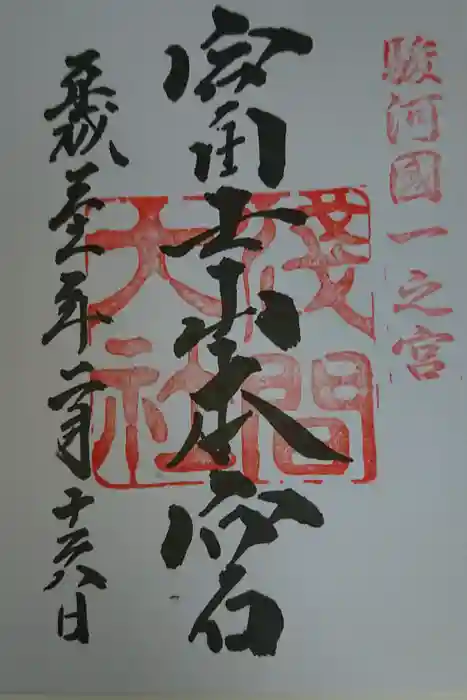 駿河國一之宮
富士山本宮
淺間大社
平成廿七年二月十六日